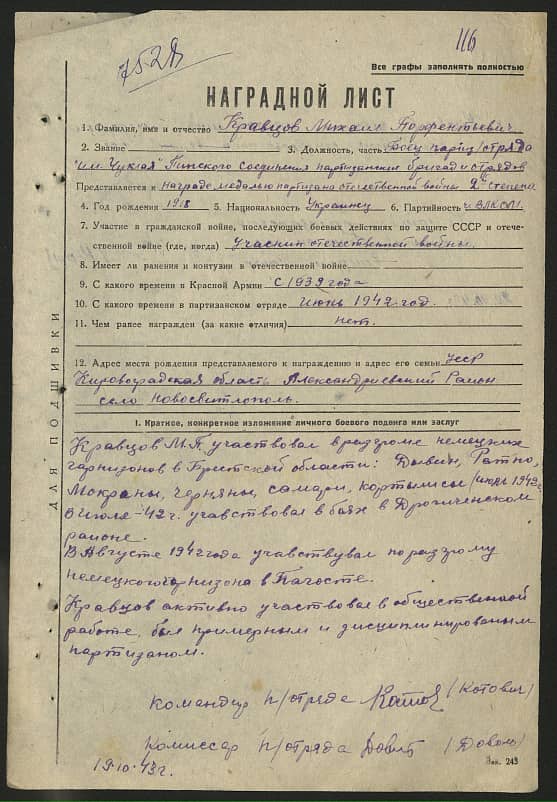 116
Все графы заполнять полностью
НАГРАДНОЙ ЛИСТ
1. Фамилия, имя и отчество Кравцов Михаил Порфентьевич
2. Звание 3. Должность, часть Боец партиз/отряда
"им. Чуклая" Пинского соединения партизанских бригад и отрядов
Представляется к награде медалью партизана отечественной войны 2ой степени
4. Год рождения 1918 5. Национальность Украинец 6. Партийность чл ВЛКСМ.
7. Участие в гражданской войне, последующих боевых действиях по защите СССР и отече-
ственной войне (где, когда) Учасник отечественной войны.
8. Имеет ли ранения и контузии в отечественной войне
9. С какого времени в Красной Армии С 1939 года
10. С какого времени в партизанском отряде Июнь 1942 год.
11. Чем ранее награжден (за какие отличия) нет.
12. Адрес места рождения представляемого к награждению и адрес его семьи УССР
Кировоградская область Александриевский Район
село Новосвитлополь.
I. Краткое, конкретное изложение личного боевого подвига или заслуг
Кравцов М.П. участвовал в раздроме немецких
гарнизонов в Бритской области: Дывин, Ратно,
Мокраны, Черняны, Самари, Кортылисы /июнь 1942г.
В июле-42г. учавствовал в боях в Дрогиченском
районе.
В Августе 1942 года учавствувал по раздрому
немецкого гарнизона в Погосте.
Кравцов активно участвовал в общественной
работе, был примерным и дисциплинированым
партизаном.
Командир п/отряда (Котович)
Комиссар п/отряда
19.10.43г.
Зак. 243
ДЛЯ ПОДШИВКИ